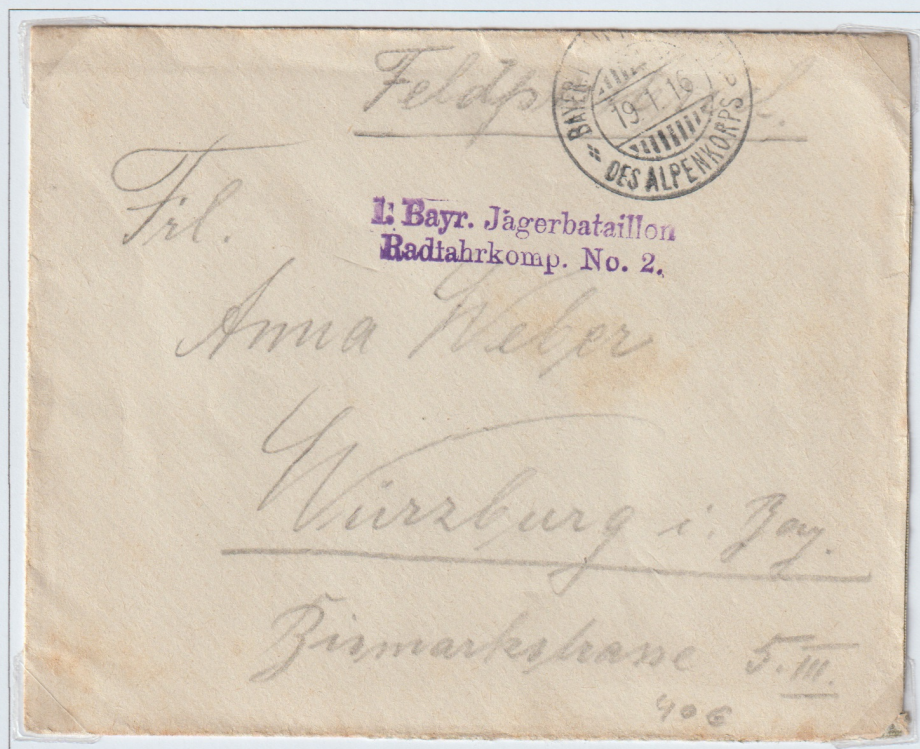 Feldp
BAYER.
19.1.16
* DES ALPENKORPS
Frl.
1. Bayr. Jägerbataillon
Radfahrkomp. No. 2.
Anna Weber
Würzburg i. Bay.
Bismarkstrasse 5.III.
40 €